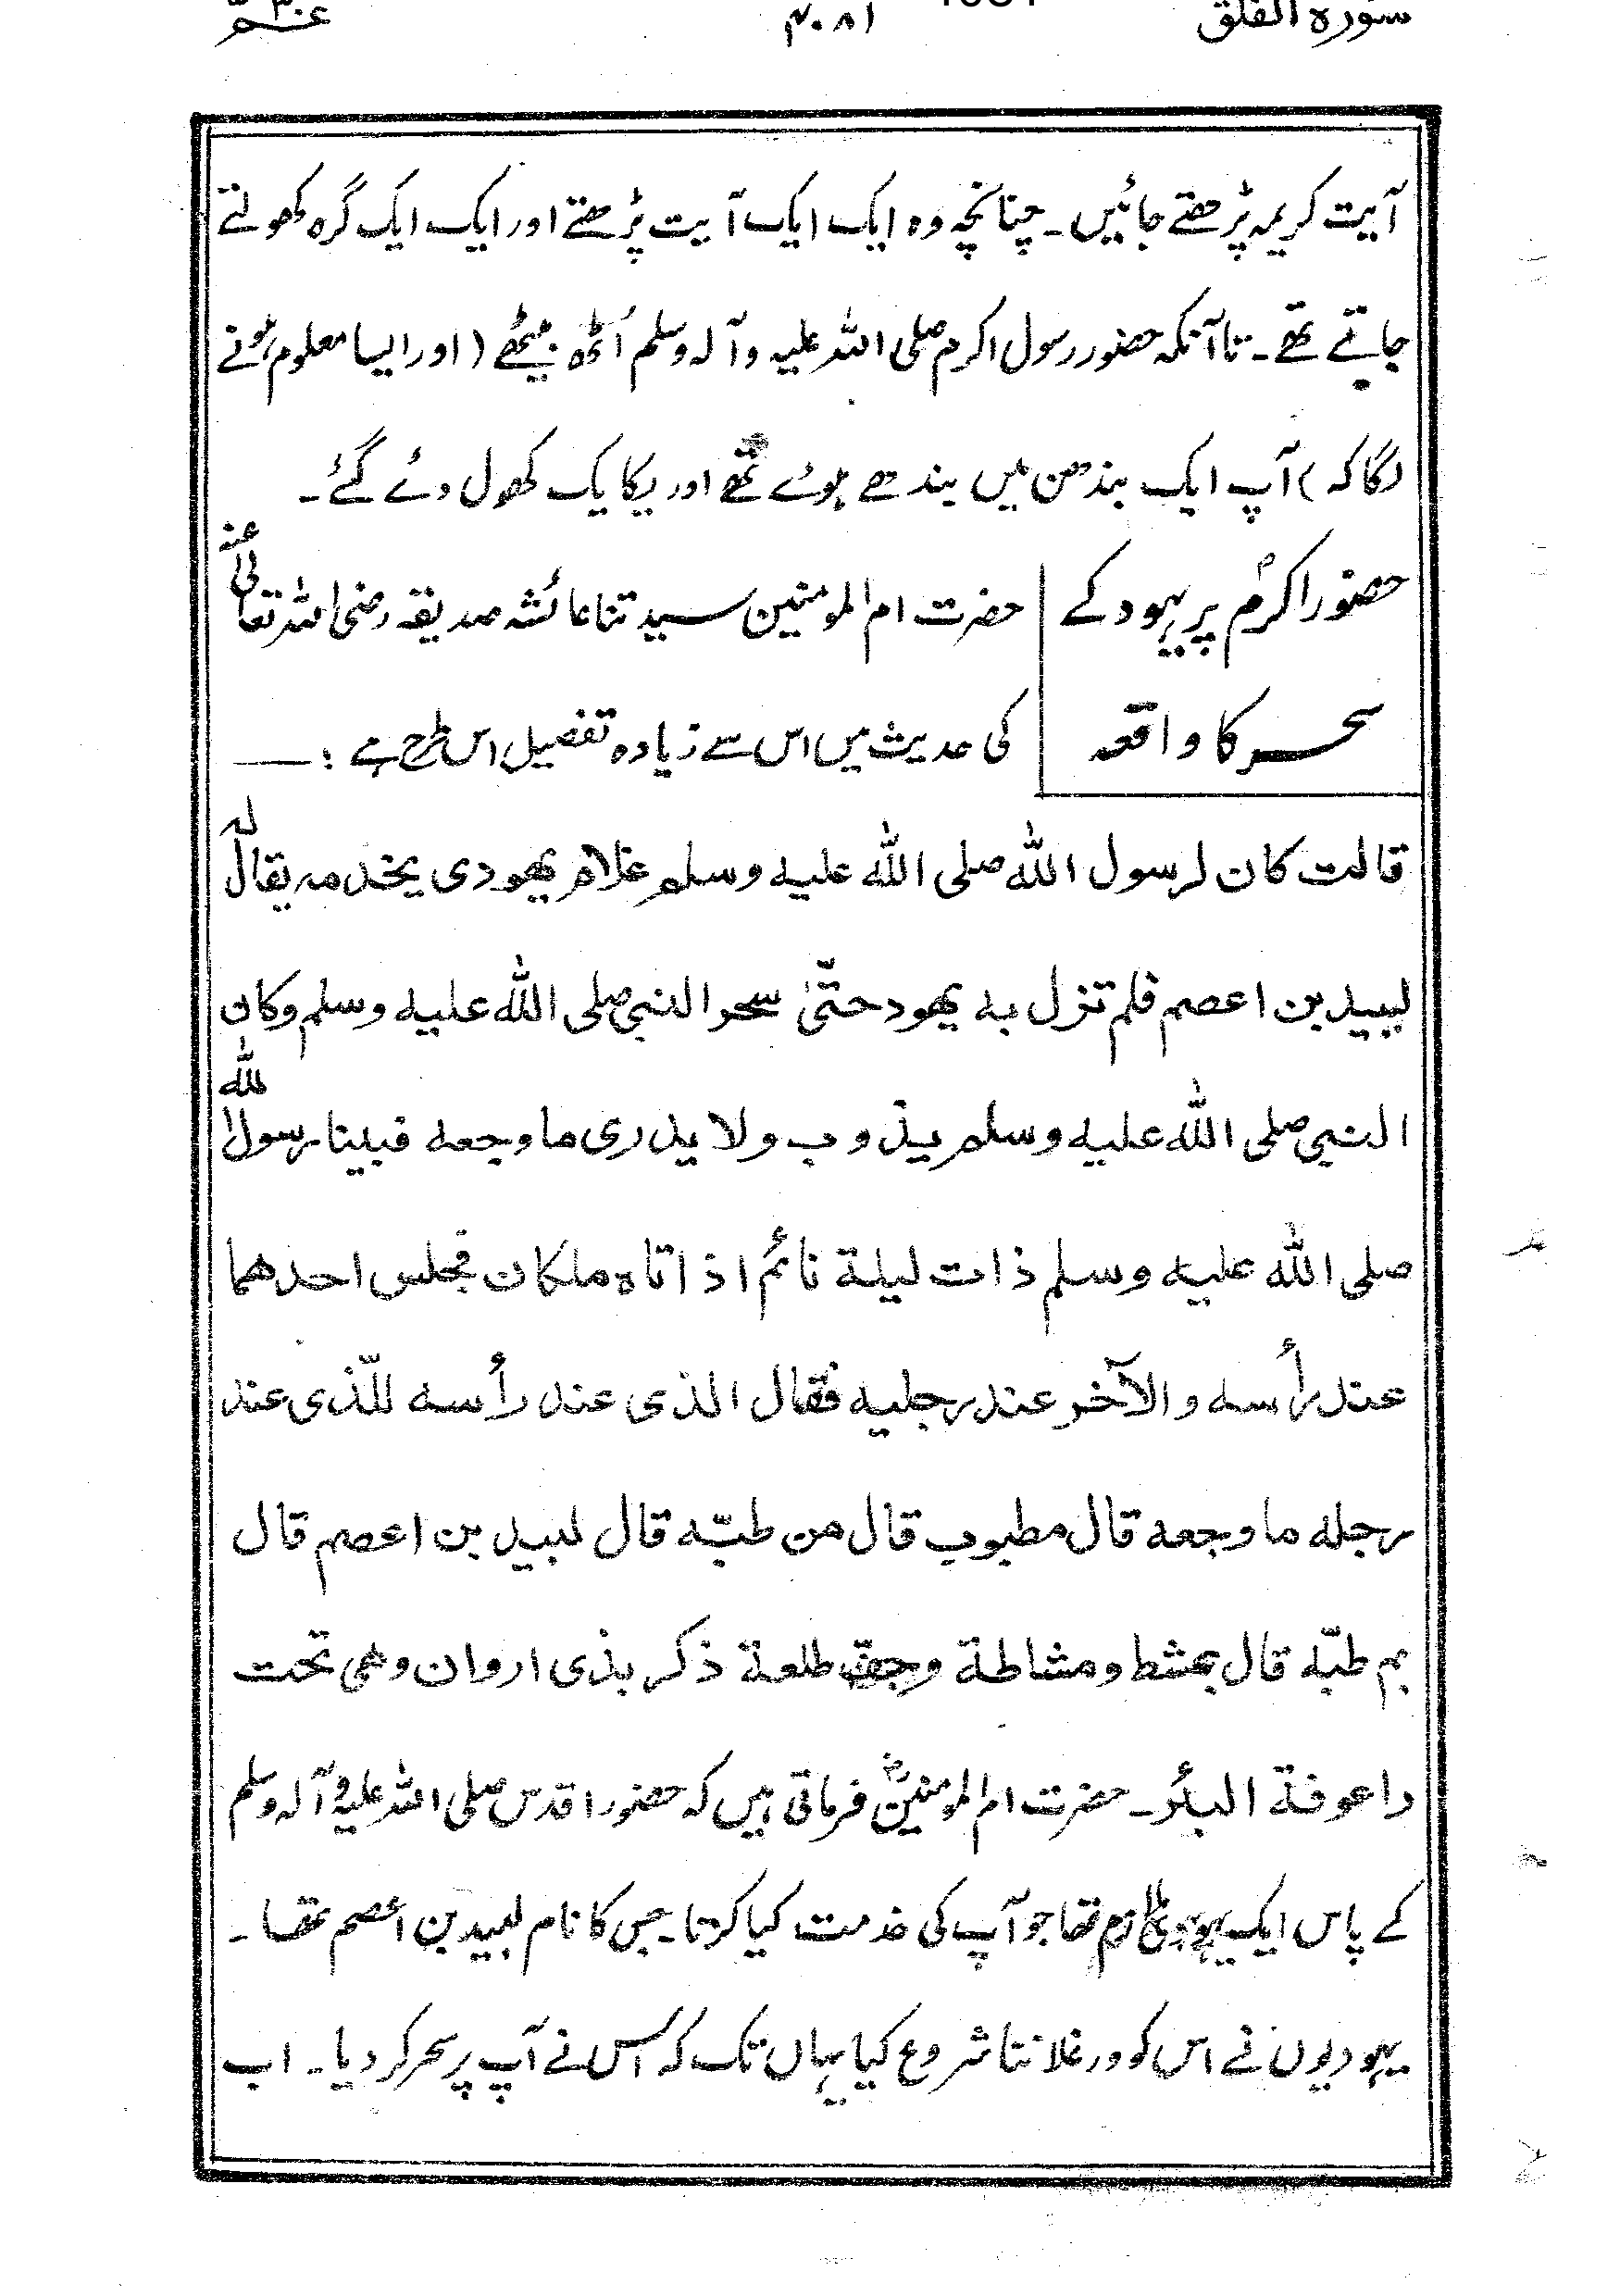 سورہ الفلق ۴۰۸۱ عم ۳۰
آیت کریمہ پڑھتے جائیں۔ چنانچہ وہ ایک ایک آیت پڑھتے اور ایک ایک گرہ کھولتے
جاتے تھے۔ تاآنکہ حضور رسول اکرم صلی اللہ علیہ وآلہ وسلم اُٹھ بیٹھے (اور ایسا معلوم ہونے
لگا کہ) آپ ایک بندھن میں بندھے ہوئے تھے اور یکایک کھول دئے گئے۔
حضور اکرمؐ پر یہود کے
سحر کا واقعہ
حضرت ام المومنین سیدتنا عائشہ صدیقہ رضی اللہ تعالیٰ عنہ
کی حدیث میں اس سے زیادہ تفصیل اس طرح ہے :——
قالت کان لرسول اللہ صلی اللہ علیہ وسلم غلام یھودی یخدمہ یقال لہ
لبید بن اعصم فلم تزل بہ یھود حتّیٰ سحر النبی صلی اللہ علیہ وسلم وکان
النبی صلی اللہ علیہ وسلم یذوب ولا یدری ما وجعہ فبینا رسول اللہ
صلی اللہ علیہ وسلم ذات لیلة نائم اذ اتاہ ملکان فجلس احدھما
عند رأسہ والآخر عند رجلیہ فقال الذی عند رأسہ للّذی عند
رجلہ ما وجعہ قال مطبوب قال من طبّہ قال لبید بن اعصم قال
بم طبّہ قال بمشط ومشاطة وجف طلعة ذکر بذی اروان وھی تحت
راعوفة البئر۔ حضرت ام المومنینؓ فرماتی ہیں کہ حضور اقدس صلی اللہ علیہ وآلہ وسلم
کے پاس ایک یہودی ملازم تھا جو آپ کی خدمت کیا کرتا۔ جس کا نام لبید بن اعصم تھا۔
یہودیوں نے اس کو ورغلانتا شروع کیا یہاں تک کہ اُس نے آپ پر سحر کر دیا۔ اب